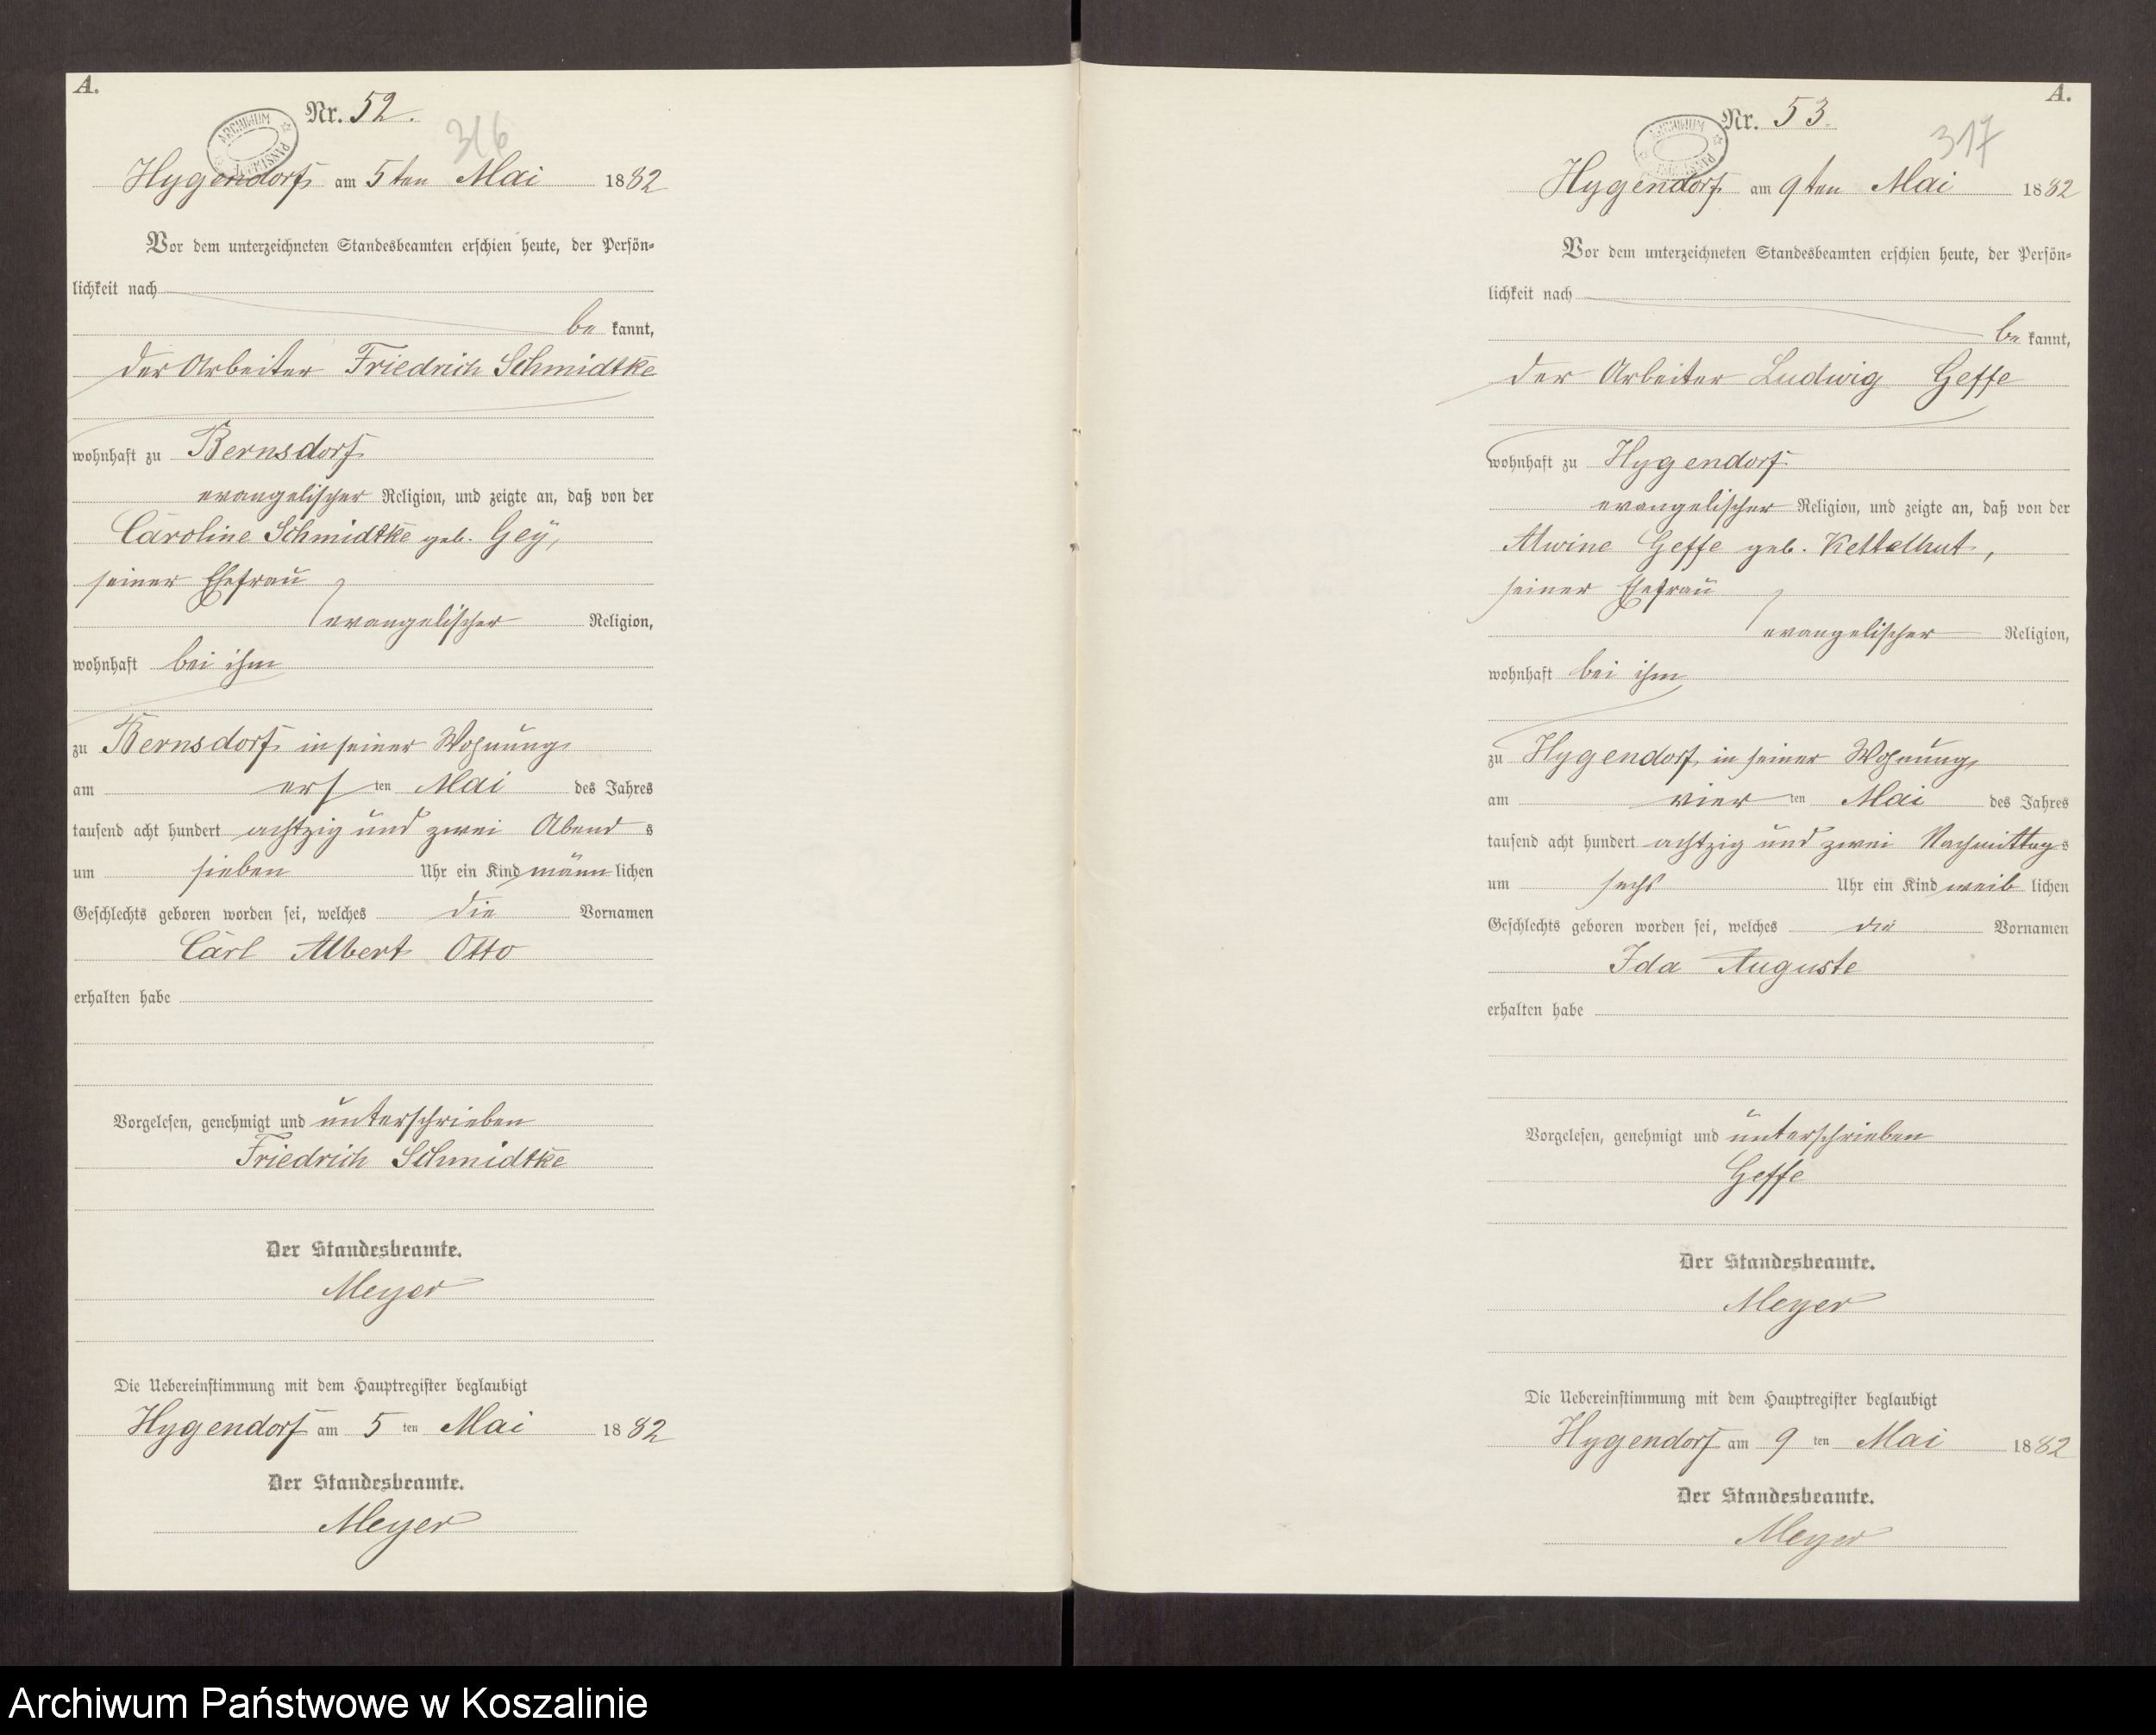 A.
Nr. 52.
316
ARCHIWUM PAŃSTWOWE
Hygendorf am 5ten Mai 1882
Vor dem unterzeichneten Standesbeamten erschien heute, der Persön-
lichkeit nach
be kannt,
der Arbeiter Friedrich Schmidtke
wohnhaft zu Bernsdorf
evangelischer Religion, und zeigte an, daß von der
Caroline Schmidtke geb. Gey,
seiner Ehefrau
evangelischer Religion,
wohnhaft bei ihm
zu Bernsdorf in seiner Wohnung
am ersten Mai des Jahres
tausend acht hundert achtzig und zwei Abends
um sieben Uhr ein Kind männlichen
Geschlechts geboren worden sei, welches die Vornamen
Carl Albert Otto
erhalten habe
Vorgelesen, genehmigt und unterschrieben
Friedrich Schmidtke
Der Standesbeamte.
Meyer
Die Uebereinstimmung mit dem Hauptregister beglaubigt
Hygendorf am 5ten Mai 1882
Der Standesbeamte.
Meyer
A.
Nr. 53.
317
ARCHIWUM
Hygendorf am 9ten Mai 1882
Vor dem unterzeichneten Standesbeamten erschien heute, der Persön-
lichkeit nach
be kannt,
der Arbeiter Ludwig Geffe
wohnhaft zu Hygendorf
evangelischer Religion, und zeigte an, daß von der
Alwine Geffe geb. Kettelhut,
seiner Ehefrau
evangelischer Religion,
wohnhaft bei ihm
zu Hygendorf in seiner Wohnung
am vierten Mai des Jahres
tausend acht hundert achtzig und zwei Nachmittags
um sechs Uhr ein Kind weiblichen
Geschlechts geboren worden sei, welches die Vornamen
Ida Auguste
erhalten habe
Vorgelesen, genehmigt und unterschrieben
Geffe
Der Standesbeamte.
Meyer
Die Uebereinstimmung mit dem Hauptregister beglaubigt
Hygendorf am 9ten Mai 1882
Der Standesbeamte.
Meyer
Archiwum Państwowe w Koszalinie